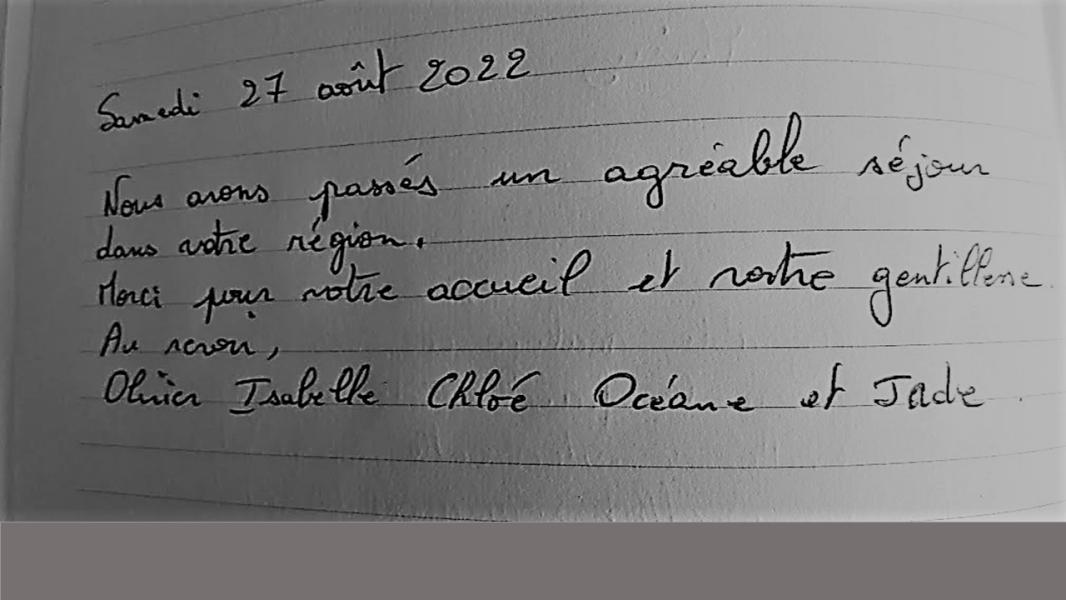 Samedi 27 août 2022
Nous avons passés un agréable séjour
dans votre région.
Merci pour votre accueil et votre gentillesse.
Au revoir,
Olivier Isabelle Chloé Océane et Jade.